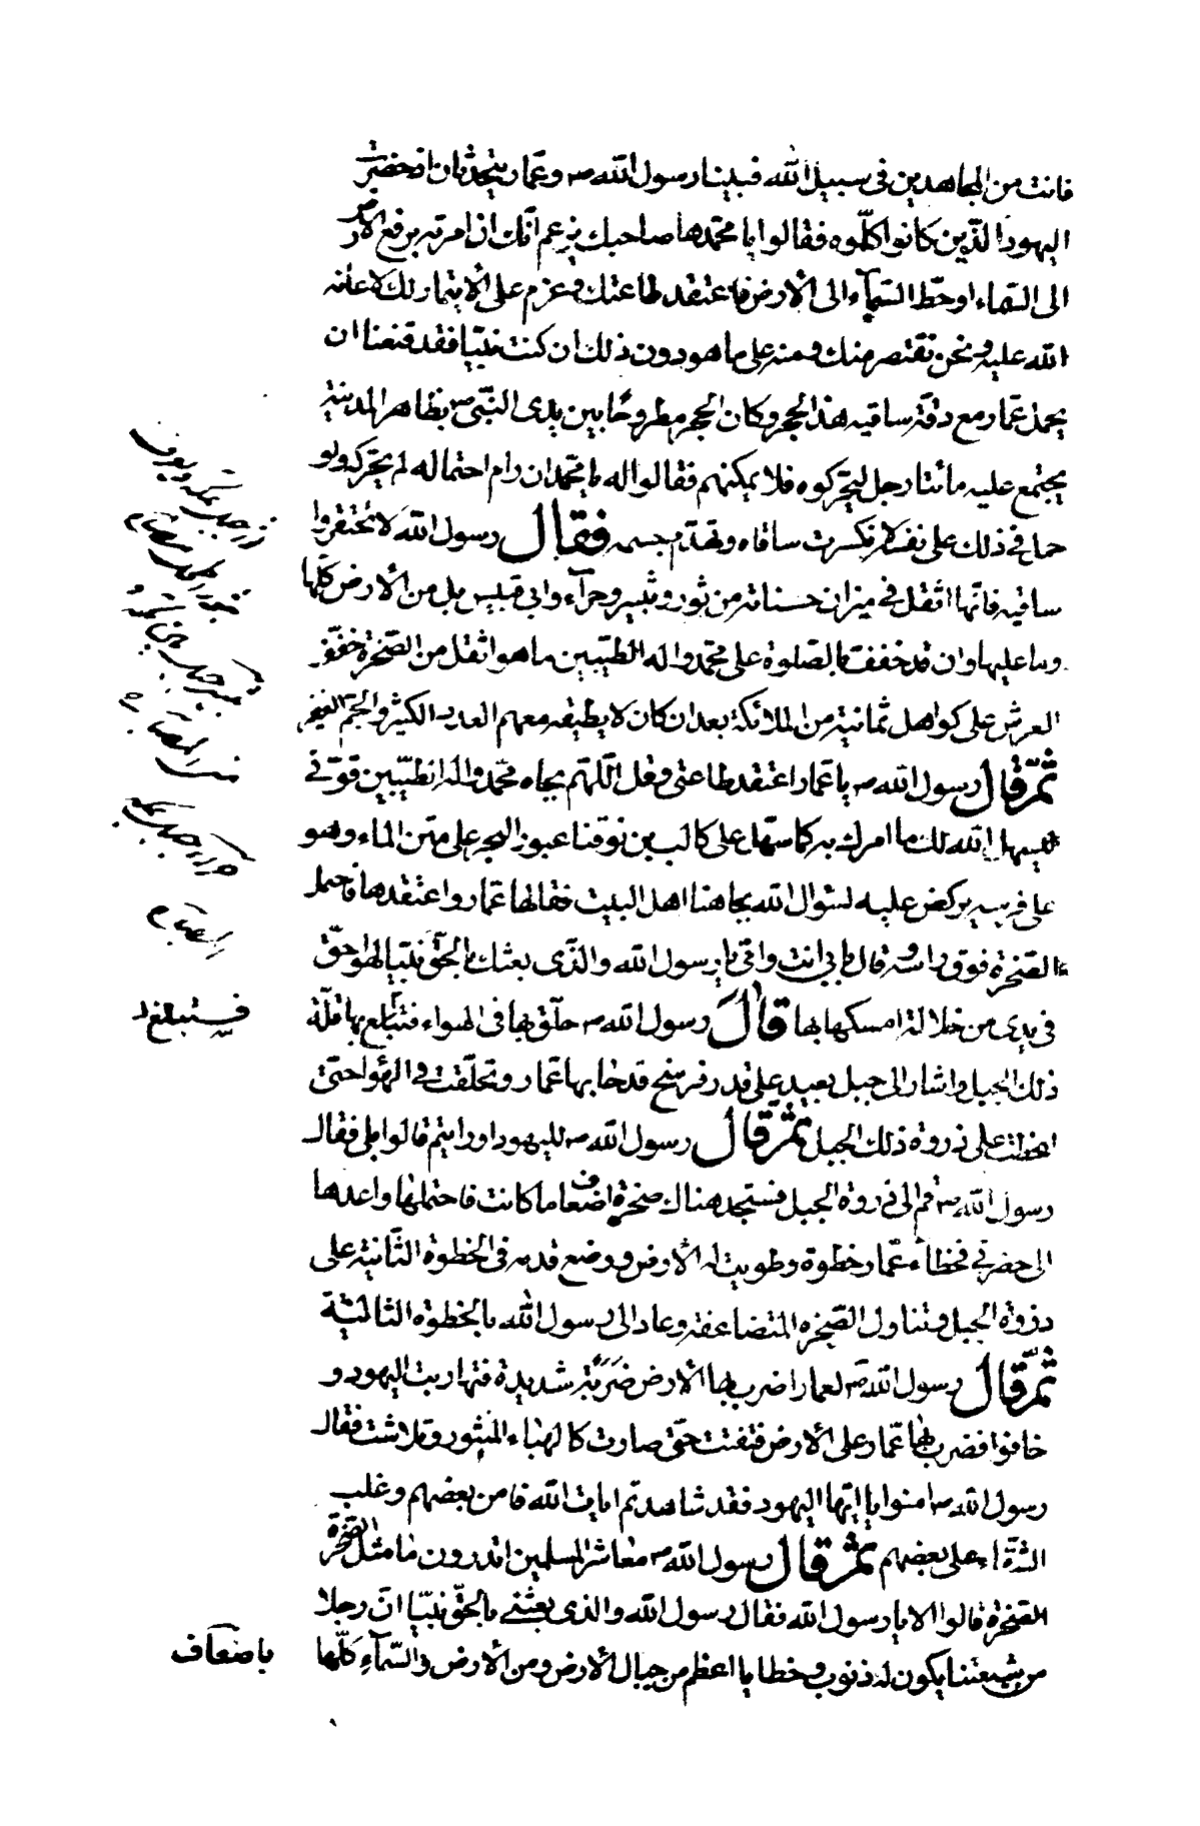 فانت من المجاهدين فى سبيل الله فبينا رسول الله ص وعمار يتحدثان اذ حضرت
اليهود الذين كانوا كلموه فقالوا يا محمد ها صاحبك يزعم انك ان امرته برفع الارض
الى السماء او حط السماء الى الارض فاعتقد طاعتك وعزم على الايتمار لك لاعانه
الله عليه ونحن نقتصر منك ومنه على ما هو دون ذلك ان كنت نبيا فقد قنعنا ان
يحمل عمار مع دقة ساقيه هذا الحجر وكان الحجر مطروحا بين يدى النبى ص بظاهر المدينة
يجتمع عليه مائتا رجل ليحركوه فلا يمكنهم فقالوا له يا محمد ان رام احتماله لم يحركه ولو
حمل فى ذلك على نفسه لانكسرت ساقاه وتهدم جسمه فقال رسول الله لا تحتقروا
ساقيه فانها اثقل فى ميزان حسناته من ثور وثبير وحراء وابى قبيس بل من الارض كلها
وما عليها وان قد خفف بالصلوة على محمد واله الطيبين ما هو اثقل من الصخرة خفف
العرش على كواهل ثمانية من الملائكة بعد ان كان لا يطيقه معهم العدد الكثير والجم الغفير
ثم قال رسول الله ص يا عمار اعتقد طاعتى وقل اللهم بجاه محمد واله الطيبين قونى
ليسهل الله لك ما امرك به كما سهل على كالب بن يوقنا عبور البحر على متن الماء وهو
على فرسه يركض عليه لسؤال الله بجاهنا اهل البيت فقالها عمار واعتقدها فحمل
الصخرة فوق راسه وقال بابى انت وامى يا رسول الله والذى بعثك بالحق نبيا لهو اخف
فى يدى من خلالة امسكها بها قال رسول الله ص حلق بها فى الهواء فتبلغ بها قلة
فستبلغ
ذلك الجبل واشار الى جبل بعيد على قدر فرسخ قدحا بها عمار وتحلقت فى الهواء حتى
انحطت على ذروة ذلك الجبل ثم قال رسول الله ص لليهود اورايتم قالوا بلى فقال
رسول الله ص قم الى ذروة الجبل فستجد هناك صخرة اضعاف ما كانت فاحتملها واعدها
الى حضرتى فخطا عمار خطوة وطويت له الارض ووضع قدمه فى الخطوة الثانية على
ذروة الجبل وتناول الصخرة المتضاعفة وعاد الى رسول الله بالخطوة الثالثة
ثم قال رسول الله ص لعمار اضرب بها الارض ضربة شديدة فتهاربت اليهود و
خافوا فضرب بها عمار على الارض فتفتت حتى صارت كالهباء المنثور وتلاشت فقال
رسول الله ص امنوا يا ايها اليهود فقد شاهدتم ايات الله فامن بعضهم وغلب
الشقاء على بعضهم ثم قال رسول الله ص معاشر المسلمين اتدرون ما مثل هذه
الصخرة قالوا لا يا رسول الله فقال رسول الله والذى بعثنى بالحق نبيا ان رجلا
من شيعتنا يكون له ذنوب وخطايا اعظم من جبال الارض ومن الارض والسماء كلها
باضعاف